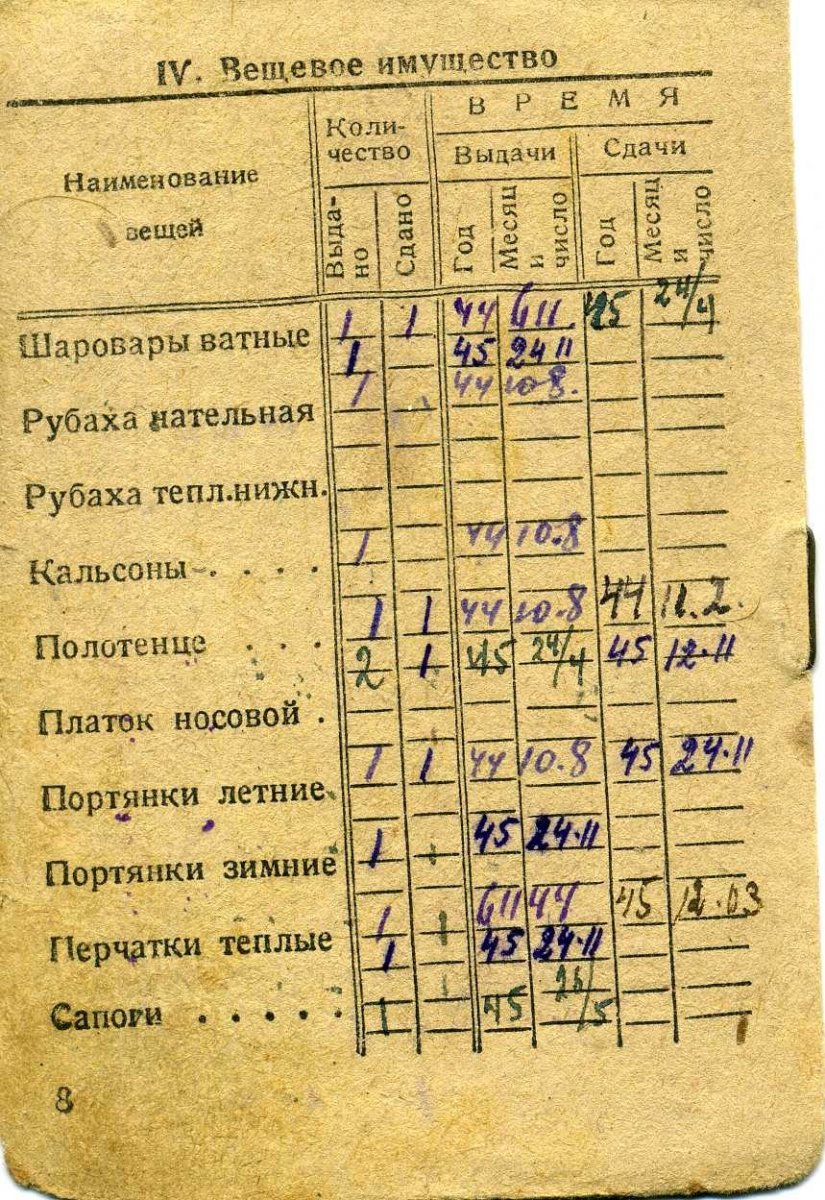 IV. Вещевое имущество
Наименование вещей
Коли-
чество
ВРЕМЯ
Выдачи
Сдачи
Выда-
но
Сдано
Год
Месяц
и
число
Год
Месяц
и
число
1 1 44 6 11. 45 24/4
Шаровары ватные
1 45 24 11
1 44 10.8.
Рубаха нательная
Рубаха тепл.нижн.
1 44 10.8
Кальсоны . . . .
1 1 44 10.8 44 11.2.
Полотенце . . .
2 1 45 24/4 45 12.11
Платок носовой .
1 1 44 10.8 45 24.11
Портянки летние
1 45 24.11
Портянки зимние
1 6 11 44 45 12.03
Перчатки теплые
1 45 24.11
1 45 26/5
Сапоги . . . . .
8